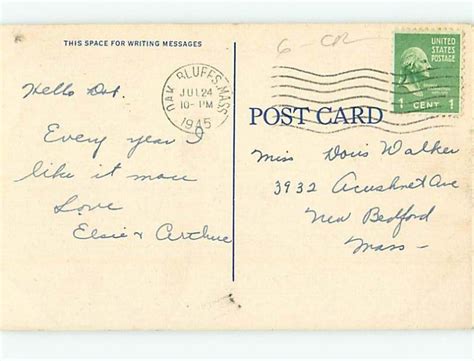 THIS SPACE FOR WRITING MESSAGES
Hello Dot.
Every year I
like it more
Love
Elsie & Arthur
6-CR
OAK BLUFFS, MASS
JUL 24
10-PM
1945
UNITED
STATES
POSTAGE
1 CENT 1
POST CARD
Miss Doris Walker
3932 Acushnet Ave
New Bedford
Mass-